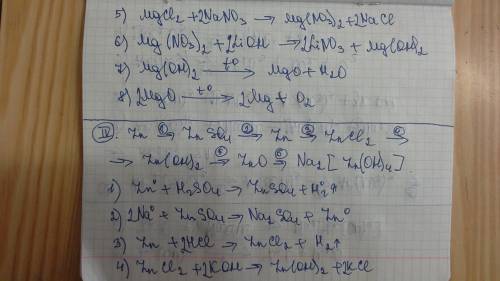 5) MgCl2 + 2NaNO3 → Mg(NO3)2 + 2NaCl
6) Mg(NO3)2 + 2LiOH → 2LiNO3 + Mg(OH)2
7) Mg(OH)2 —t°→ MgO + H2O
8) 2MgO —t°→ 2Mg + O2
IV. Zn —1→ ZnSO4 —2→ Zn —3→ ZnCl2 —4→
→ Zn(OH)2 —5→ ZnO —6→ Na2[Zn(OH)4]
1) Zn° + H2SO4 → ZnSO4 + H2°↑
2) 2Na° + ZnSO4 → Na2SO4 + Zn°
3) Zn + 2HCl → ZnCl2 + H2↑
4) ZnCl2 + 2KOH → Zn(OH)2 + 2KCl